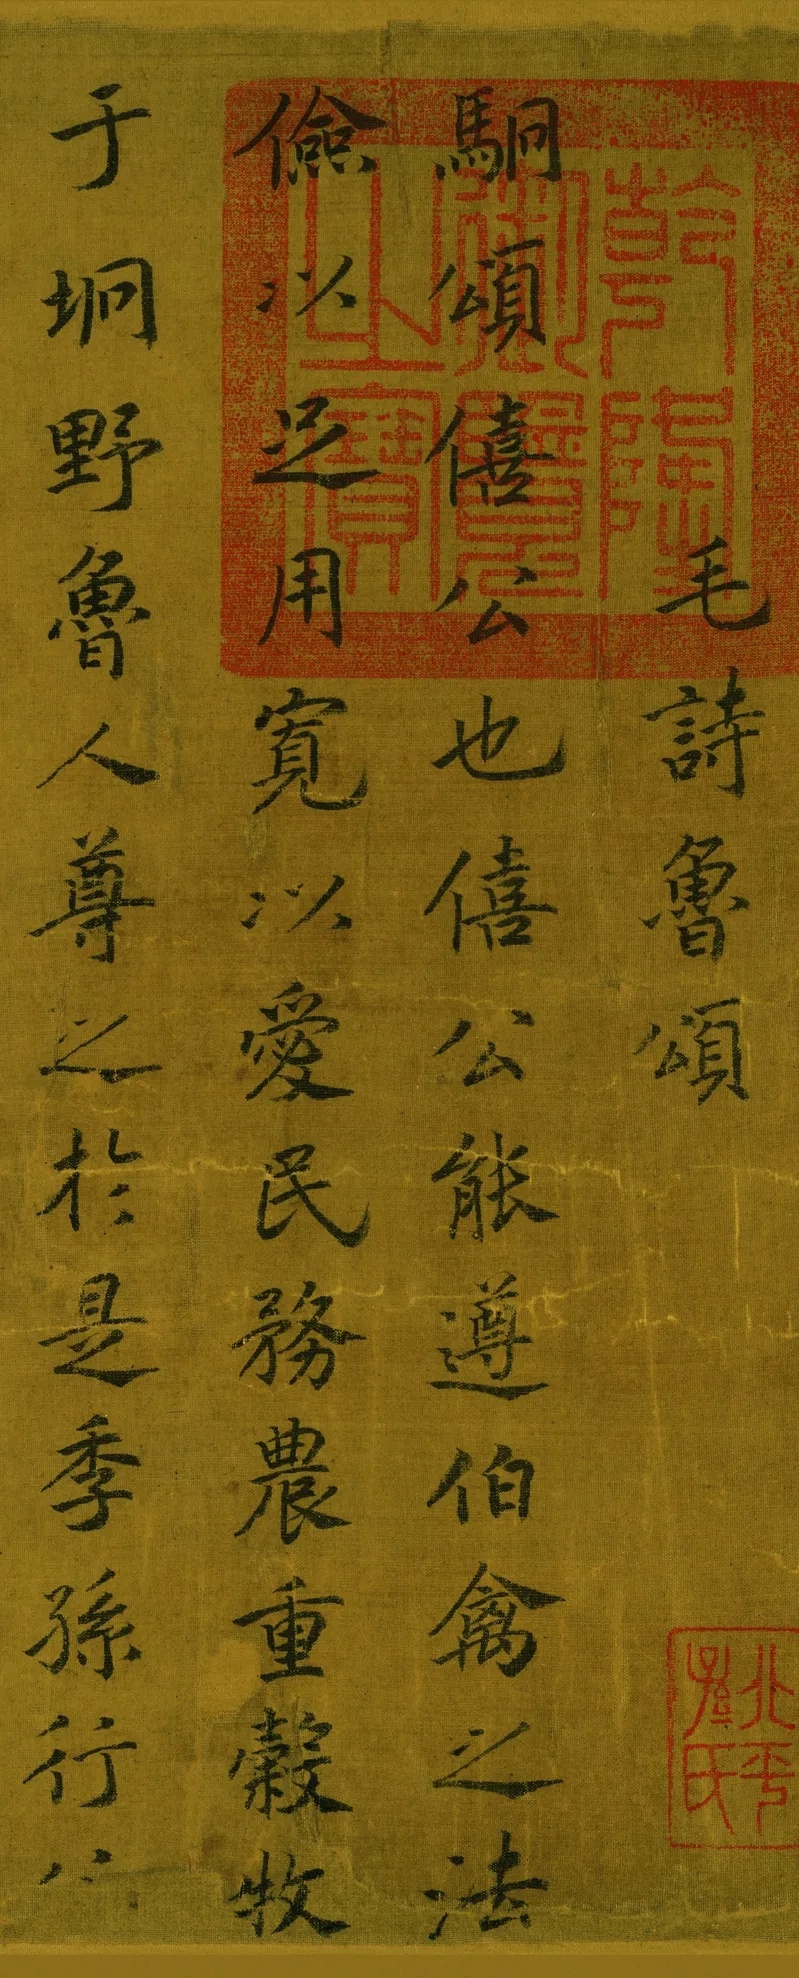 毛詩魯頌
駉頌僖公也僖公能遵伯禽之法
儉以足用寬以愛民務農重穀牧
于坰野魯人尊之於是季孫行
乾隆
御覽
之寶
北平
孫氏